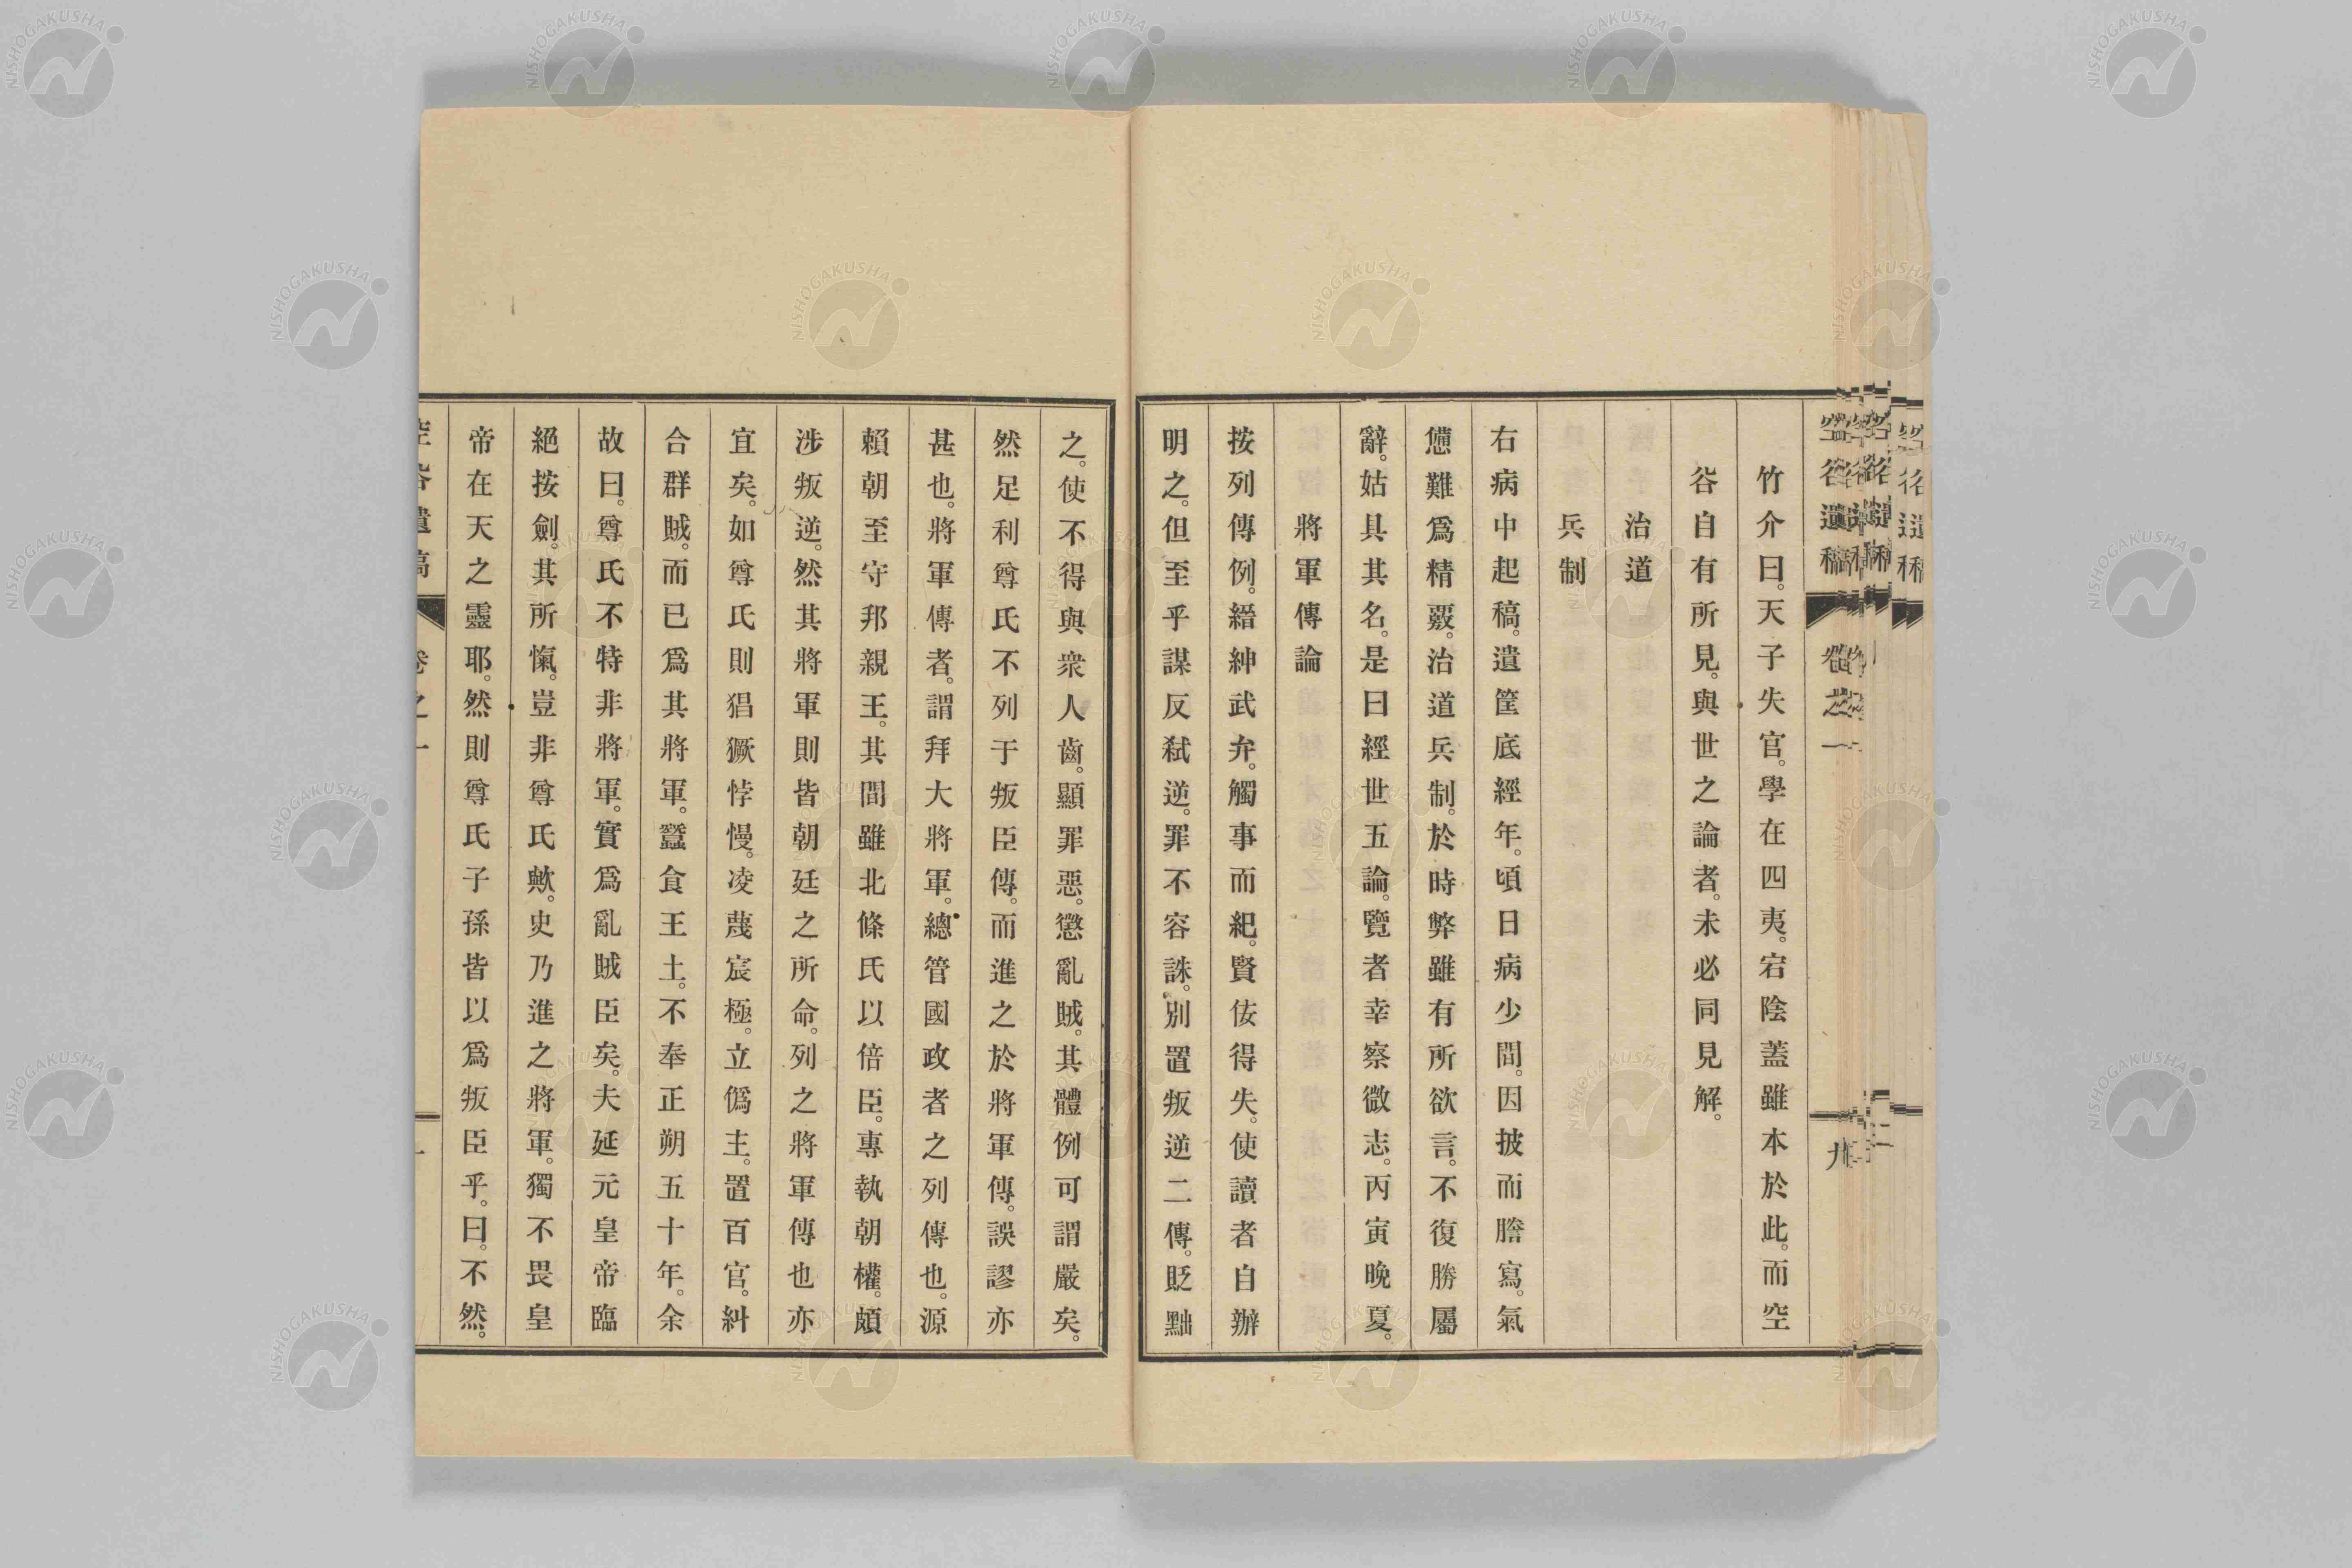 空谷遺稿 卷之一 九
竹介曰。天子失官。學在四夷。宕陰蓋雖本於此。而空
谷自有所見。與世之論者。未必同見解。
治道
兵制
右病中起稿。遺筐底經年。頃日病少間。因披而謄寫。氣
憊難爲精覈。治道兵制。於時弊雖有所欲言。不復勝屬
辭。姑具其名。是曰經世五論。覽者幸察微志。丙寅晚夏。
將軍傳論
按列傳例。縉紳武弁。觸事而紀。賢佞得失。使讀者自辦
明之。但至乎謀反弑逆。罪不容誅。別置叛逆二傳。貶黜
之。使不得與衆人齒。顯罪惡。懲亂賊。其體例可謂嚴矣。
然足利尊氏不列于叛臣傳。而進之於將軍傳。誤謬亦
甚也。將軍傳者。謂拜大將軍。總管國政者之列傳也。源
賴朝至守邦親王。其間雖北條氏以倍臣。專執朝權。頗
涉叛逆。然其將軍則皆朝廷之所命。列之將軍傳也亦
宜矣。如尊氏則猖獗悖慢。凌蔑宸極。立僞主。置百官。糾
合群賊。而已爲其將軍。蠶食王土。不奉正朔五十年。余
故曰。尊氏不特非將軍。實爲亂賊臣矣。夫延元皇帝臨
絕按劍。其所愾。豈非尊氏歟。史乃進之將軍。獨不畏皇
帝在天之靈耶。然則尊氏子孫皆以爲叛臣乎。曰。不然。
空谷遺稿 卷之一
NISHOGAKUSHA